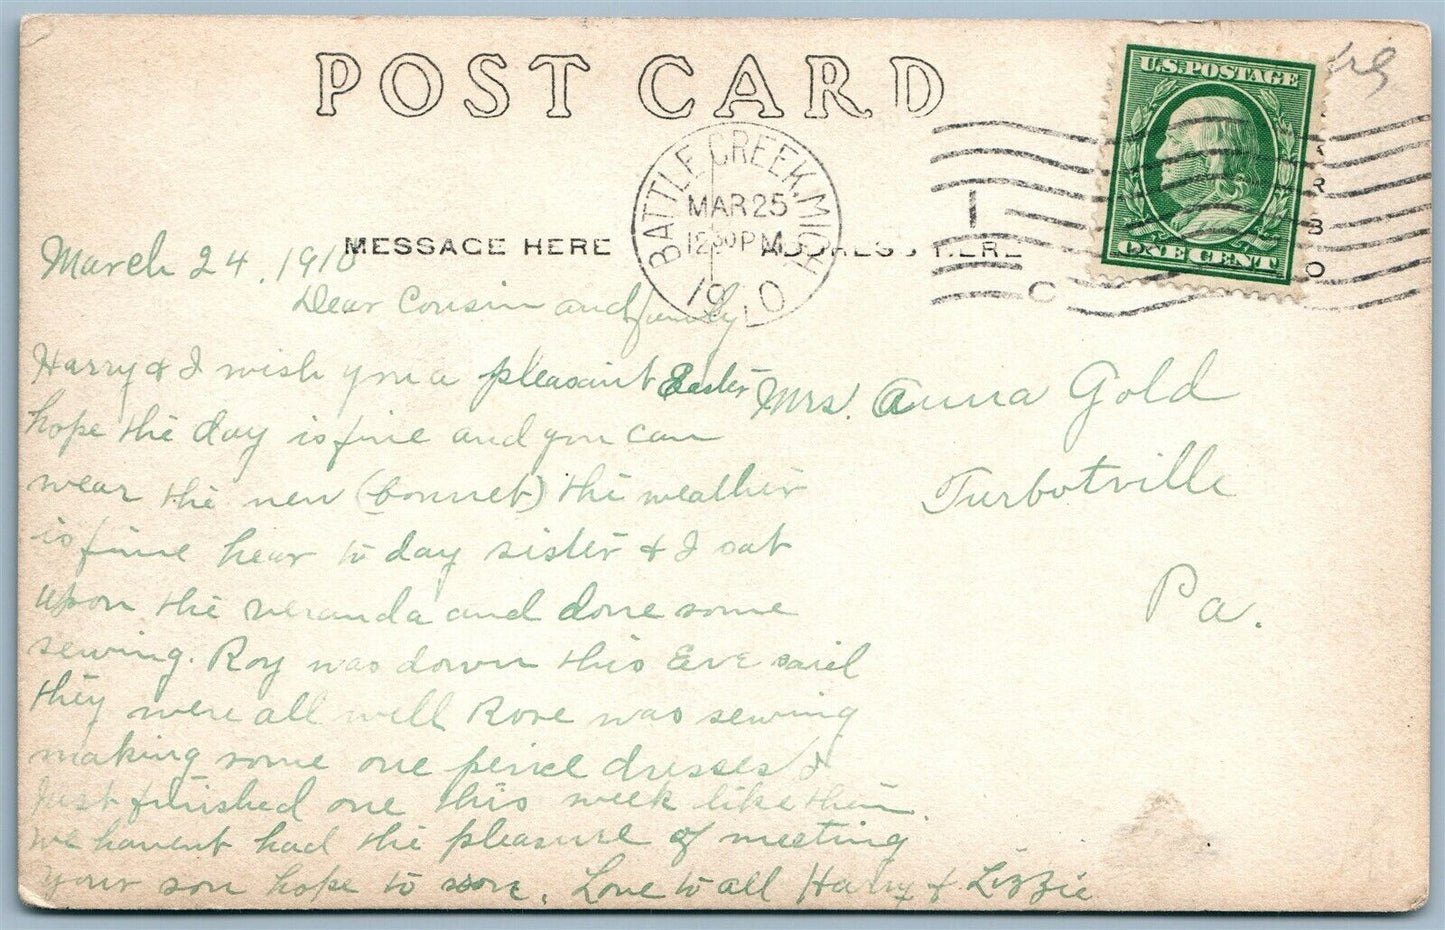 POST CARD
U.S. POSTAGE
ONE CENT
BATTLE CREEK, MICH
MAR 25
12 30 PM
1910
MESSAGE HERE
ADDRESS HERE
March 24, 1910
Dear Cousin and family
Harry & I wish you a pleasant Easter
hope the day is fine and you can
wear the new (bonnet) the weather
is fine hear to day sister & I sat
upon the veranda and done some
sewing. Roy was down this Eve said
they were all well Rose was sewing
making some one peice dresses &
just finished one this week like them
we havent had the pleasure of meeting
your son hope to soon. Love to all Harry & Lizzie
Mrs. Anna Gold
Turbotville
Pa.